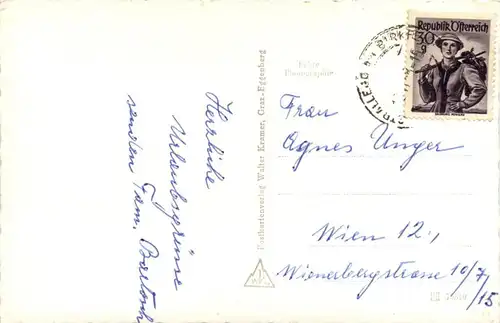 Herzliche
Urlaubsgrüsse
senden Fam.
Postkartenverlag Walter Kramer, Graz-Eggenberg
Echte
Photographie
Republik Österreich
30
g
Frau
Agnes Unger
Wien 12.,
Wienerbergstrasse 10/7/
15